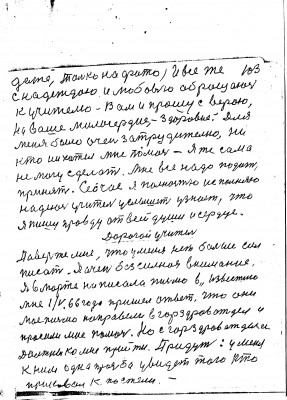 даже, только на фото) и все же 103
с надеждою и любовью обращаюсь
к учителю - Вам и прошу с верою,
на ваше милосердие - здоровье. Для
меня было очен затруднително, ни
кто не хотел мне помоч - я же сама
не могу сделат. Мне все надо подат,
принят. Сейчас я полностю исполняю
надеюс учител услышит узнает, что
я пишу правду от всей души и сердце.
Дорогой учител
Поверте мне, что у меня нет болше сил
писат. Я очен безсилная внимание.
Я в марте написала писмо в „Известию
мне 1/IV, 66 года пришел ответ, что они
мое писмо направили в горздравотдел и
просили мне помоч. Но с горздравотдела
должны ко мне прийти. Придут: у меня
к ним одна прозба увидет того кто
приковал к постели. -